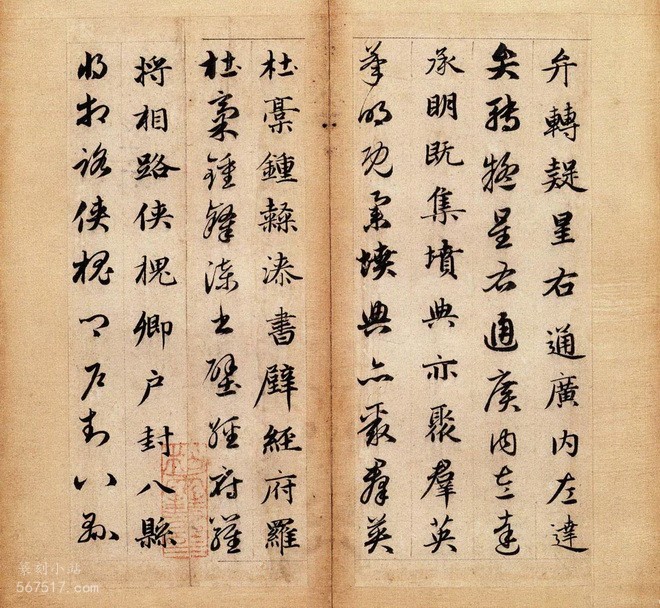 弁轉疑星右通廣內左達
弁轉疑星右通廣內左達
承明既集墳典亦聚羣英
承明既集墳典亦聚羣英
杜稾鍾隸漆書壁經府羅
杜稾鍾隸漆書壁經府羅
將相路俠槐卿户封八縣
將相路俠槐卿户封八縣
篆刻小站
567517.com